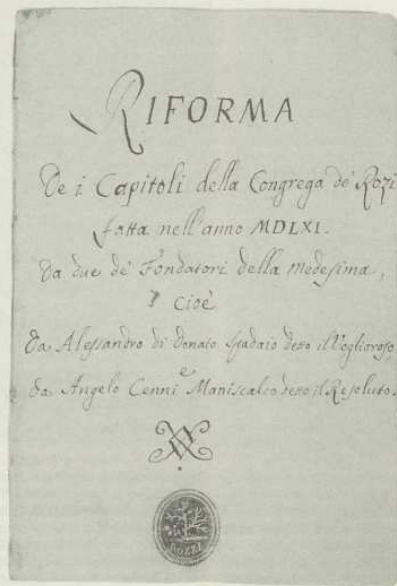 RIFORMA
De i Capitoli della Congrega de' Rozi
fatta nell'anno MDLXI.
Da due de' Fondatori della medesima,
cioè
Da Alessandro di Donato Spadaio detto il Voglioroso,
e
Da Angelo Cenni Maniscalco detto il Resoluto.
ROZZI